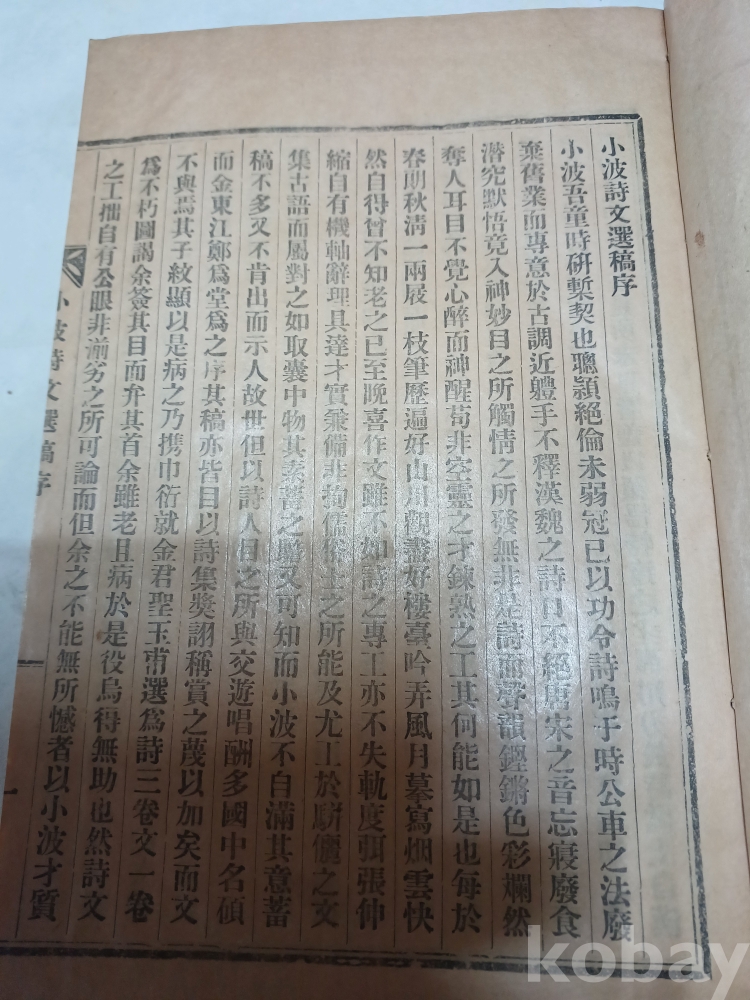 小波詩文選稿序
小波吾童時硏槧契也聰頴絕倫未弱冠已以功令詩鳴于時公車之法廢
棄舊業而專意於古調近軆手不釋漢魏之詩口不絕唐宋之音忘寢廢食
潛究默悟竟入神妙目之所觸情之所發無非是詩而聲韻鏗鏘色彩斕然
奪人耳目不覺心醉而神醒苟非空靈之才鍊熟之工其何能如是也每於
春朝秋淸一兩屐一枝筆歷遍好山川觀盡好樓臺吟弄風月摹寫烟雲快
然自得曾不知老之已至晚喜作文雖不如詩之專工亦不失軌度弭張伸
縮自有機軸辭理具達才實兼備非拘儒俗士之所能及尤工於騈儷之文
集古語而屬對之如取囊中物其素蓄之贍又可知而小波不自滿其意蓄
稿不多又不肯出而示人故世但以詩人目之所與交遊唱酬多國中名碩
而金東江鄭爲堂爲之序其稿亦皆目以詩集獎詡稱賞之蔑以加矣而文
不與焉其子紋顯以是病之乃携巾衍就金君聖玉甫選爲詩三卷文一卷
爲不朽圖謁余簽其目而弁其首余雖老且病於是役烏得無助也然詩文
之工拙自有公眼非湔劣之所可論而但余之不能無所憾者以小波才質
小波詩文選稿序
一
kobay